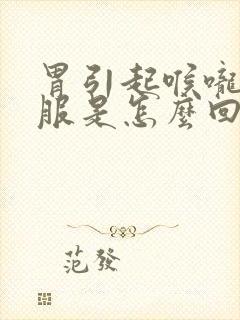 胃引起喉嚨
服是怎麼回
范發